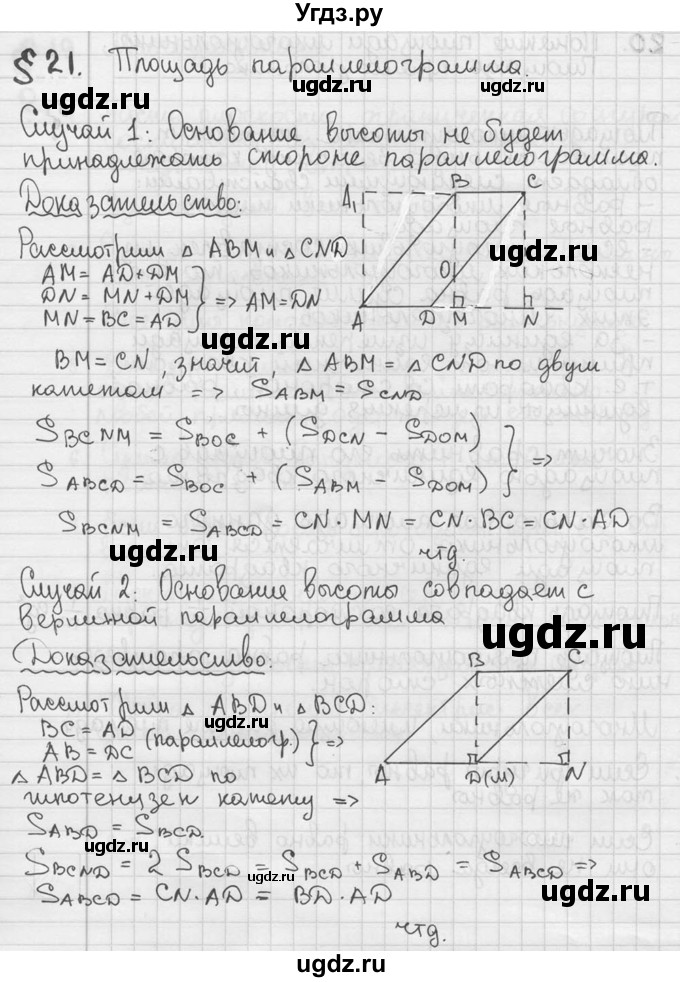 Угдз.ру
§ 21. Площадь параллелограмма.
ugdz.ru ugdz.ru
Случай 1: Основание высоты не будет
принадлежать стороне параллелограмма.
Доказательство:
A₁ B C
Рассмотрим △ ABM и △ CND
AM = AD + DM
DN = MN + DM
MN = BC = AD
=> AM = DN
ugdz.ru
O
ugdz.ru
A D M N
BM = CN, значит, △ ABM = △ CND по двум
катетам => S ABM = S CND
ugdz.ru
S BCNM = S BOC + (S DCN − S DOM)
S ABCD = S BOC + (S ABM − S DOM)
=>
S BCNM = S ABCD = CN · MN = CN · BC = CN · AD
ugdz.ru
чтд.
Случай 2: Основание высоты совпадает с
вершиной параллелограмма
ugdz.ru
Доказательство:
B C
Рассмотрим △ ABD и △ BCD:
ugdz.ru
BC = AD
AB = DC
(параллелогр.) =>
A D(M) N
△ ABD = △ BCD по
гипотенузе и катету =>
S ABD = S BCD.
ugdz.ru
S BCND = 2 S BCD = S BCD + S ABD = S ABCD =>
ugdz.ru
S ABCD = CN · AD = BD · AD
ugdz.ru
чтд.
ugdz.ru